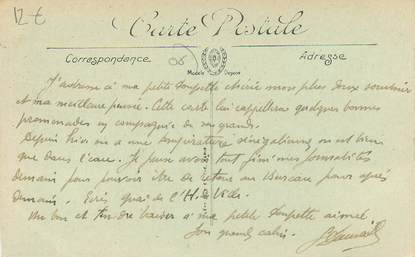 12 €
Carte Postale
Correspondance
Adresse
Modèle Déposé
J'adresse à ma petite Soupette chérie mon plus doux souvenir
et ma meilleure pensée. Cette carte lui rappellera quelques bonnes
promenades en compagnie de son grand.
Depuis hier on a une température sénégalienne, on est bien
que dans l'eau. Je pense avoir tout fini mes formalités
demain pour pouvoir être de retour au Bureau pour après
demain. Ecris quai de l'H. de Ville.
Un bon et tendre baiser à ma petite Soupette aimée.
Son grand